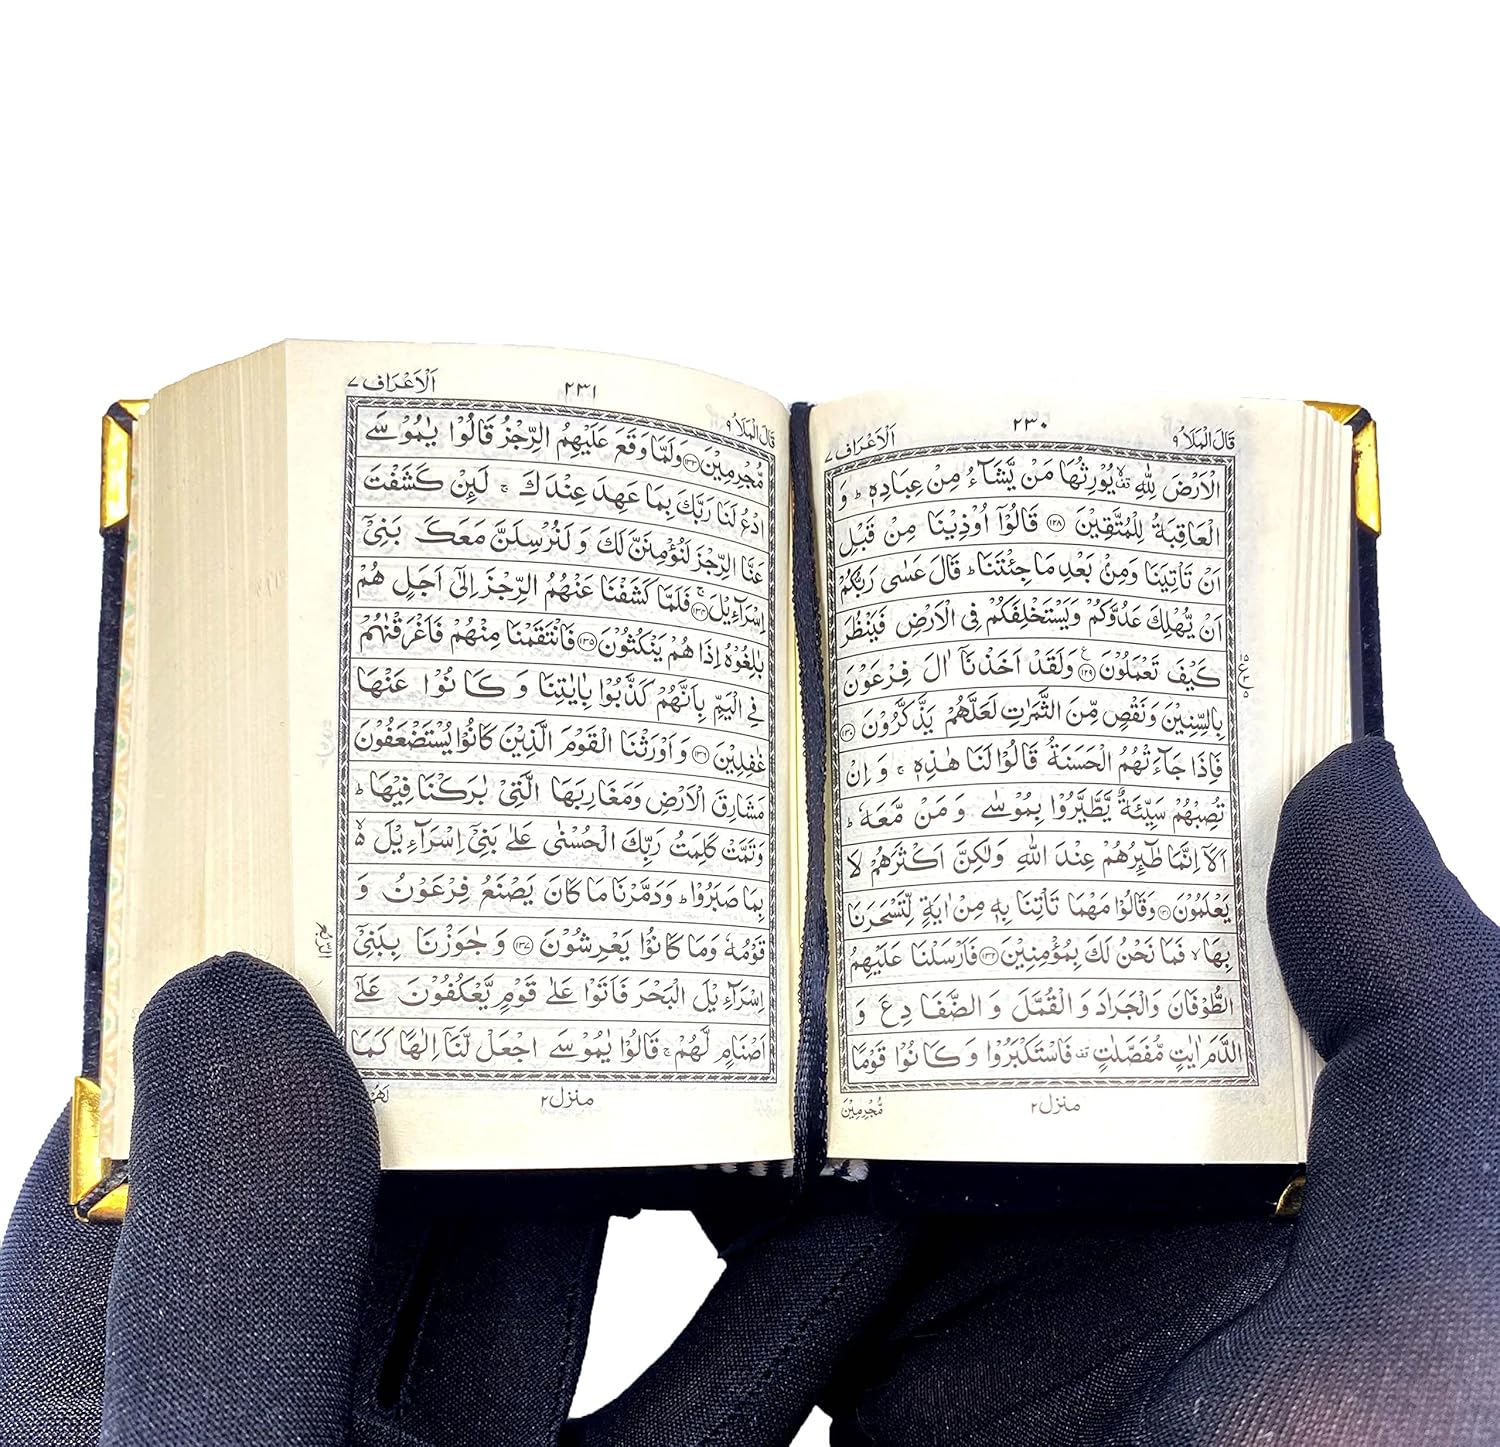 اَلْاَعْرَاف ٧
٢٣٠
قَالَ الْمَلَاُ ٩
الْاَرْضَ لِلّٰهِ ۟ۙ يُوْرِثُهَا مَنْ يَّشَآءُ مِنْ عِبَادِهٖ ؕ وَ
الْعَاقِبَةُ لِلْمُتَّقِيْنَ ﴿١٢٨﴾ قَالُوْۤا اُوْذِيْنَا مِنْ قَبْلِ
اَنْ تَاْتِيَنَا وَمِنْۢ بَعْدِ مَا جِئْتَنَا ؕ قَالَ عَسٰى رَبُّكُمْ
اَنْ يُّهْلِكَ عَدُوَّكُمْ وَيَسْتَخْلِفَكُمْ فِى الْاَرْضِ فَيَنْظُرَ
كَيْفَ تَعْمَلُوْنَ ﴿١٢٩﴾ وَلَقَدْ اَخَذْنَاۤ اٰلَ فِرْعَوْنَ
بِالسِّنِيْنَ وَنَقْصٍ مِّنَ الثَّمَرٰتِ لَعَلَّهُمْ يَذَّكَّرُوْنَ ﴿١٣٠﴾
فَاِذَا جَآءَتْهُمُ الْحَسَنَةُ قَالُوْا لَنَا هٰذِهٖ ۚ وَ اِنْ
تُصِبْهُمْ سَيِّئَةٌ يَّطَّيَّرُوْا بِمُوْسٰى وَ مَنْ مَّعَهٗ ؕ
اَلَاۤ اِنَّمَا طٰٓئِرُهُمْ عِنْدَ اللّٰهِ وَلٰكِنَّ اَكْثَرَهُمْ لَا
يَعْلَمُوْنَ ﴿١٣١﴾ وَقَالُوْا مَهْمَا تَاْتِنَا بِهٖ مِنْ اٰيَةٍ لِّتَسْحَرَنَا
بِهَا ۙ فَمَا نَحْنُ لَكَ بِمُؤْمِنِيْنَ ﴿١٣٢﴾ فَاَرْسَلْنَا عَلَيْهِمُ
الطُّوْفَانَ وَالْجَرَادَ وَ الْقُمَّلَ وَ الضَّفَادِعَ وَ
الدَّمَ اٰيٰتٍ مُّفَصَّلٰتٍ ۟ فَاسْتَكْبَرُوْا وَ كَانُوْا قَوْمًا
منزل ٢
مُّجْرِمِيْنَ
اَلْاَعْرَاف ٧
٢٣١
قَالَ الْمَلَاُ ٩
مُّجْرِمِيْنَ ﴿١٣٣﴾ وَلَمَّا وَقَعَ عَلَيْهِمُ الرِّجْزُ قَالُوْا يٰمُوْسَى
ادْعُ لَنَا رَبَّكَ بِمَا عَهِدَ عِنْدَكَ ۚ لَئِنْ كَشَفْتَ
عَنَّا الرِّجْزَ لَنُؤْمِنَنَّ لَكَ وَ لَنُرْسِلَنَّ مَعَكَ بَنِىْۤ
اِسْرَآءِيْلَ ۚ﴿١٣٤﴾ فَلَمَّا كَشَفْنَا عَنْهُمُ الرِّجْزَ اِلٰٓى اَجَلٍ هُمْ
بٰلِغُوْهُ اِذَا هُمْ يَنْكُثُوْنَ ﴿١٣٥﴾ فَانْتَقَمْنَا مِنْهُمْ فَاَغْرَقْنٰهُمْ
فِى الْيَمِّ بِاَنَّهُمْ كَذَّبُوْا بِاٰيٰتِنَا وَ كَانُوْا عَنْهَا
غٰفِلِيْنَ ﴿١٣٦﴾ وَ اَوْرَثْنَا الْقَوْمَ الَّذِيْنَ كَانُوْا يُسْتَضْعَفُوْنَ
مَشَارِقَ الْاَرْضِ وَمَغَارِبَهَا الَّتِىْ بٰرَكْنَا فِيْهَا ؕ
وَتَمَّتْ كَلِمَتُ رَبِّكَ الْحُسْنٰى عَلٰى بَنِىْۤ اِسْرَآءِيْلَ ۙ۬
بِمَا صَبَرُوْا ؕ وَدَمَّرْنَا مَا كَانَ يَصْنَعُ فِرْعَوْنُ وَ
قَوْمُهٗ وَمَا كَانُوْا يَعْرِشُوْنَ ﴿١٣٧﴾ وَ جٰوَزْنَا بِبَنِىْۤ
اِسْرَآءِيْلَ الْبَحْرَ فَاَتَوْا عَلٰى قَوْمٍ يَّعْكُفُوْنَ عَلٰٓى
اَصْنَامٍ لَّهُمْ ۚ قَالُوْا يٰمُوْسَى اجْعَلْ لَّنَاۤ اِلٰهًا كَمَا
منزل ٢